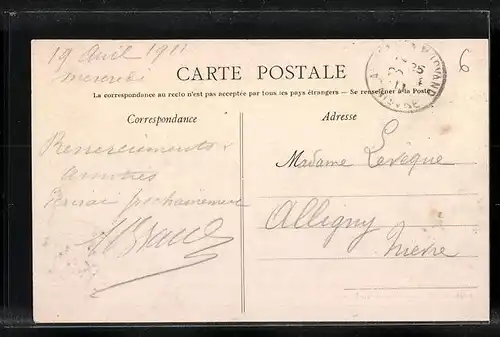 19 Avril 1911
mercredi
6
CARTE POSTALE
La correspondance au recto n'est pas acceptée par tous les pays étrangers — Se renseigner à la Poste
Correspondance
Adresse
Remerciements &
amitiés
prochainement
Madame Levêque
Alligny
Nièvre